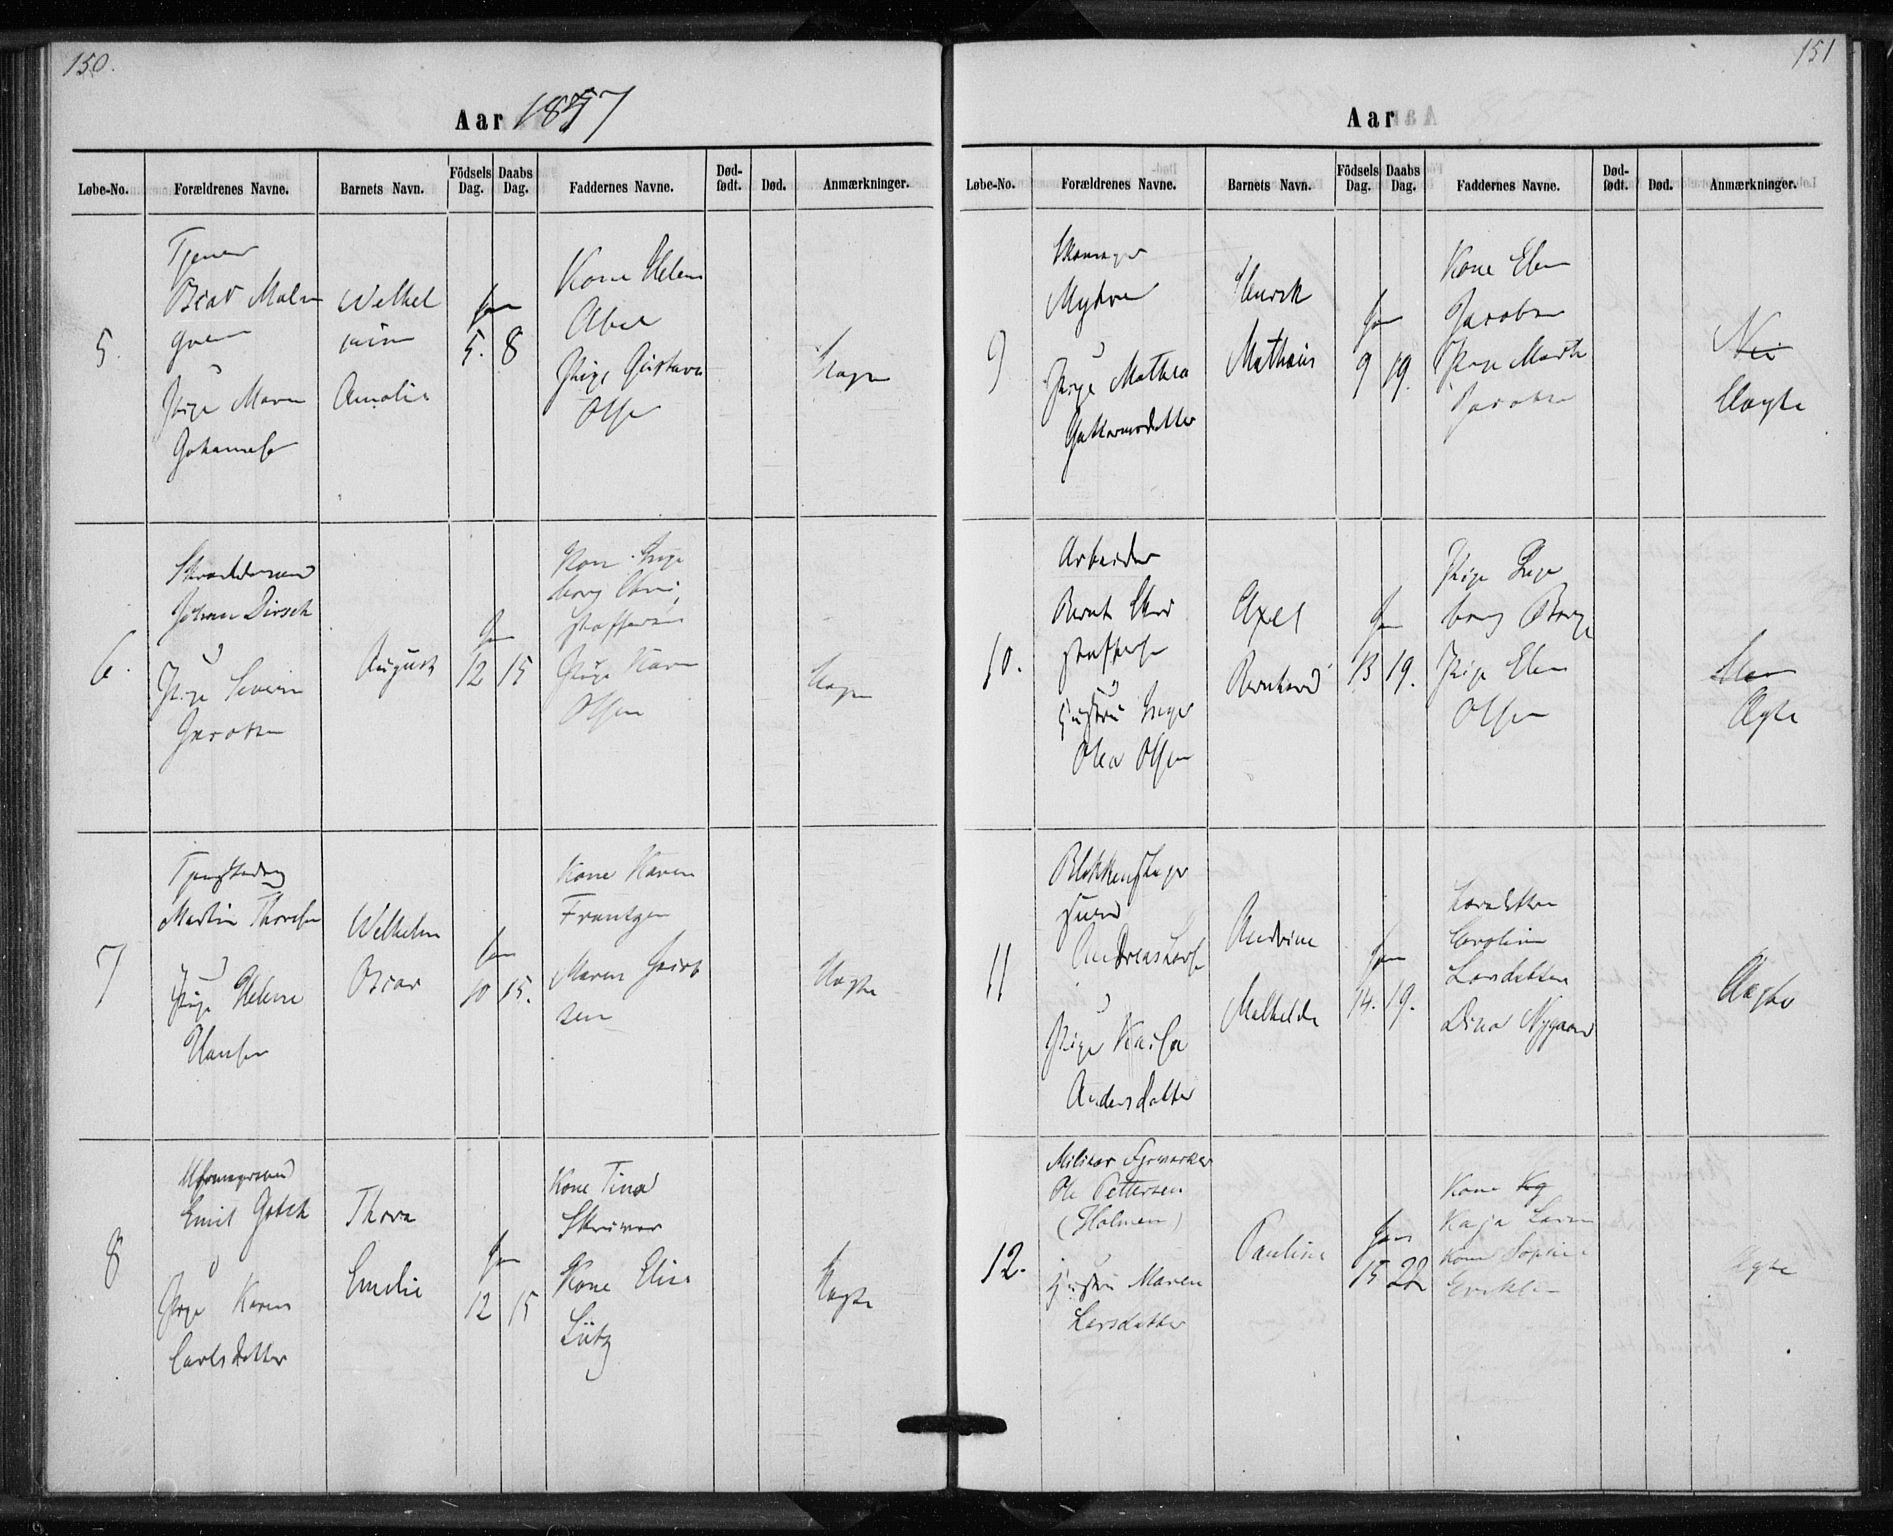 150.
Aar 1857
Løbe-No. Forældrenes Navne. Barnets Navn. Födsels Dag. Daabs Dag. Faddernes Navne. Død-født. Død. Anmærkninger.
5.
Tjener
Malm
gren
Pige Maren
Johannes
Welhel
mine
Amalie
Jan
5. 8
Kone Helene
Abel
Pige Gustava
Olsen
6.
Johan Dirsch
Pige Severine
Jacobsen
August
Jan
12 15
Kone Inge
borg Chri
stoffersen
Pige Karen
Olsen
7
Martin Thorsen
Pige Helene
Hansen
Welhelm
Oscar
Jan
10 15.
Kone Karen
Frantzen
Maren Jacob
sen
Uægte
8
Emil
Pige Karen
Carlsdatter
Thora
Emilie
Jan
12 15
Kone Tina
Skriver
Kone Elise
Lütz
Uægte
151
Aar
Løbe-No. Forældrenes Navne. Barnets Navn. Födsels Dag. Daabs Dag. Faddernes Navne. Død-født. Død. Anmærkninger.
9
Pige Mathea
Guttormsdatter
Henrik
Mathæus
Jan
9 19.
Kone Elen
Jacobsen
Pige Marthe
Jacobsen
Nei
Uægte
10.
Arbeider
Bernt Chri
stoffersen
Hustru Inger
Olea Olsen
Axel
Bernhard
Jan
13 19.
Pige Inge
borg Berg
Pige Elen
Olsen
Ægte
11
svend
Andreas Larsen
Pige Karen
Andersdatter
Andrine
Mathilde
Jan
14. 19.
Caroline
Larsdatter
Dina Nygaard
Uægte
12.
Militær Fyrværker
Ole Pettersen
(Holmen)
Hustru Maren
Larsdatter
Pauline
Jan
15 22
Kone
Kaja Larsen
Kone Sophie
Eriksen
Ægte